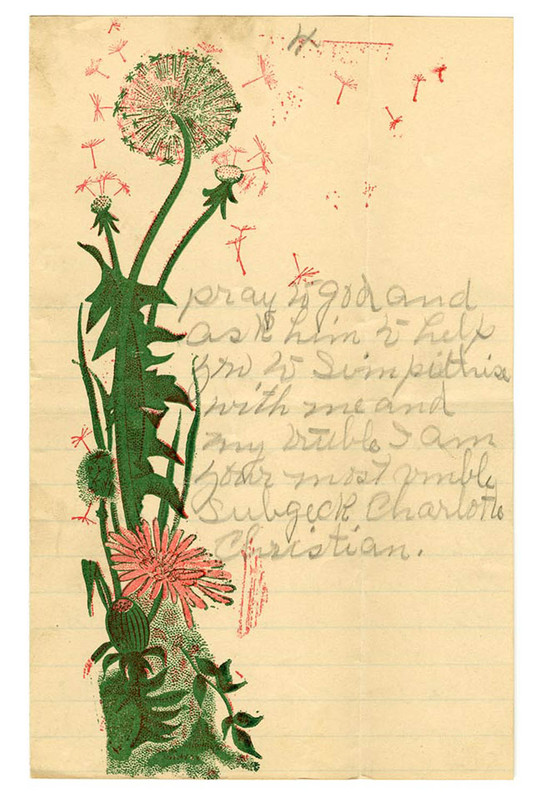 4
pray to god and
ask him to help
you to Simpithise
with me and
my truble I am
your most umble
Subgeck Charlotte
Christian.